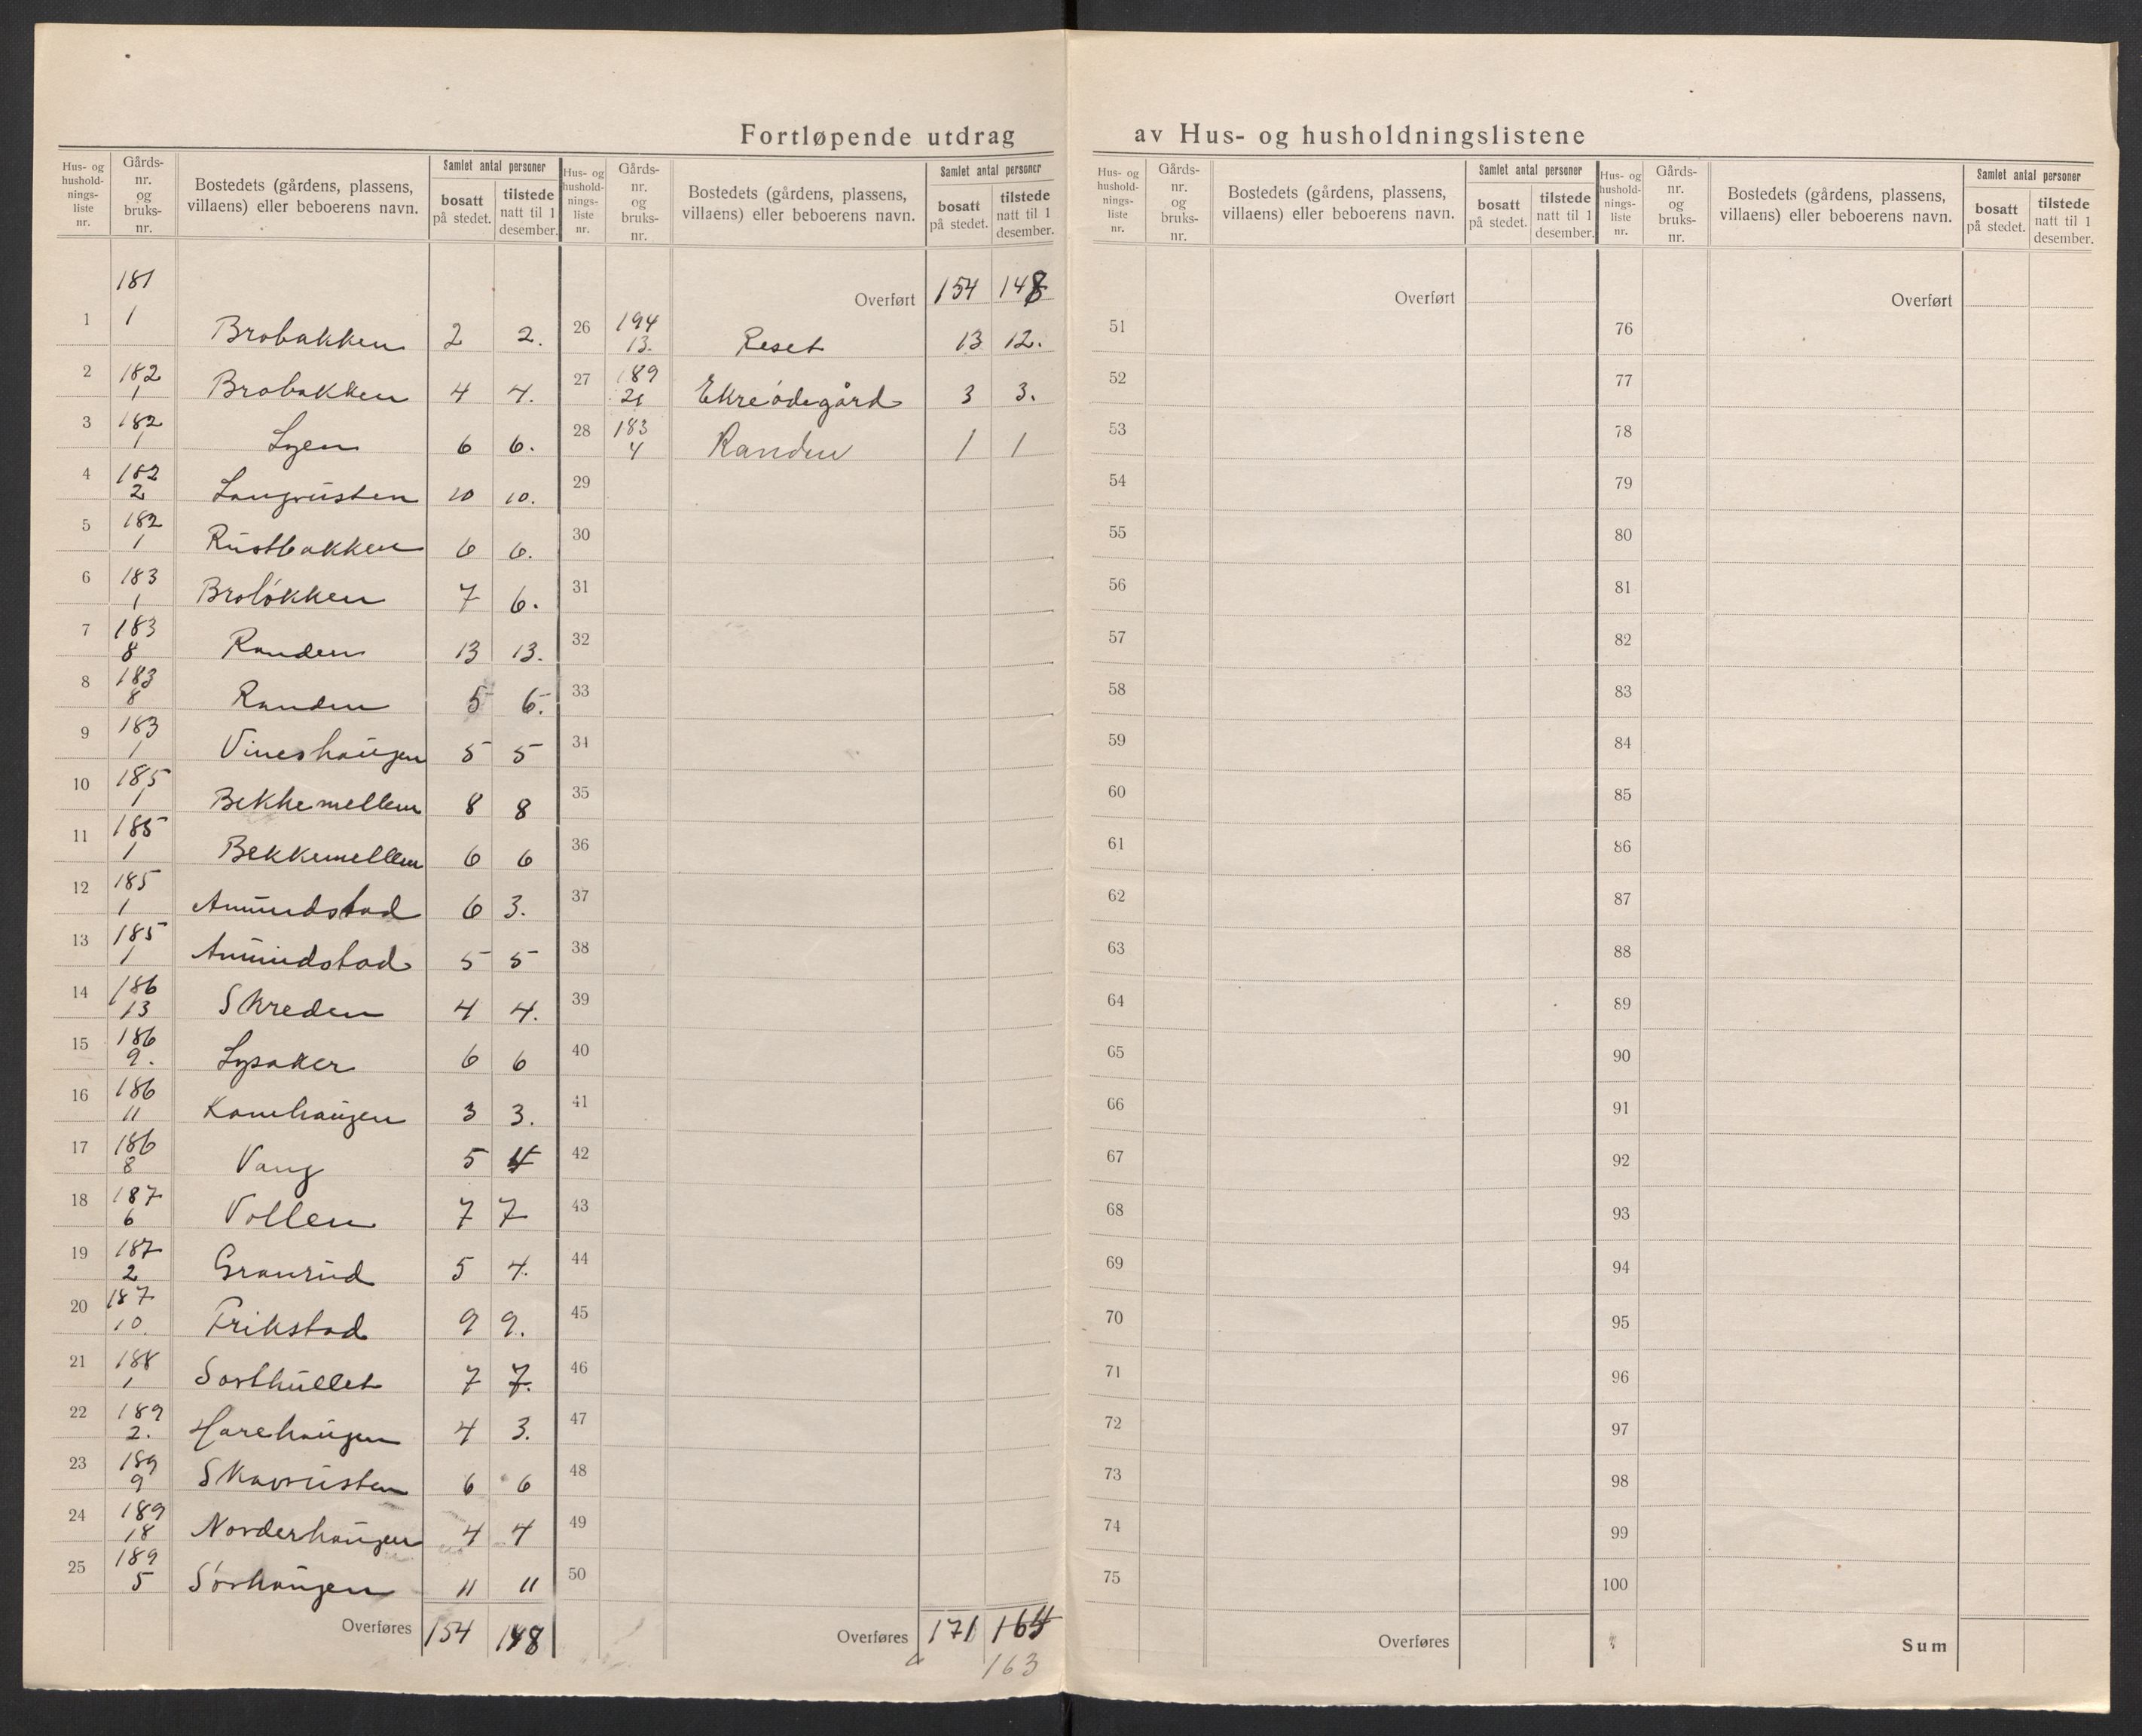 Fortløpende utdrag av Hus- og husholdningslistene
Hus- og hushold-nings-liste nr. Gårds-nr. og bruks-nr. Bostedets (gårdens, plassens, villaens) eller beboerens navn. Samlet antal personer bosatt på stedet. tilstede natt til 1 desember.
181
1 1 Brobakken 2 2.
2 182 1 Brobakken 4 4.
3 182 1 Lyen 6 6.
4 182 2 Langrusten 10 10.
5 182 1 Rustbakken 6 6.
6 183 1 Broløkken 7 6.
7 183 8 Randen 13 13.
8 183 8 Randen 5 6.
9 183 1 Vineshaugen 5 5
10 185 1 Bekkemellem 8 8
11 185 1 Bekkemellem 6 6
12 185 1 Amundstad 6 3.
13 185 1 Amundstad 5 5
14 186 13 Skreden 4 4.
15 186 9. Lysaker 6 6
16 186 11 Kamhaugen 3 3.
17 186 8 Vang 5 4
18 187 6 Vollen 7 7
19 187 2 Granrud 5 4.
20 187 10. Frikstad 9 9.
21 188 1 Sorthullet 7 7.
22 189 2. Harehaugen 4 3.
23 189 9 Skavrusten 6 6
24 189 18 Norderhaugen 4 4
25 189 5 Sørhaugen 11 11
Overføres 154 148
Hus- og hushold-nings-liste nr. Gårds-nr. og bruks-nr. Bostedets (gårdens, plassens, villaens) eller beboerens navn. Samlet antal personer bosatt på stedet. tilstede natt til 1 desember.
Overført 154 148
26 194 13. Reset 13 12.
27 189 21 Ekreødegård 3 3.
28 183 4 Randen 1 1
29
30
31
32
33
34
35
36
37
38
39
40
41
42
43
44
45
46
47
48
49
50
Overføres 171 164
163
Hus- og hushold-nings-liste nr. Gårds-nr. og bruks-nr. Bostedets (gårdens, plassens, villaens) eller beboerens navn. Samlet antal personer bosatt på stedet. tilstede natt til 1 desember.
Overført
51
52
53
54
55
56
57
58
59
60
61
62
63
64
65
66
67
68
69
70
71
72
73
74
75
Overføres
Hus- og hushold-nings-liste nr. Gårds-nr. og bruks-nr. Bostedets (gårdens, plassens, villaens) eller beboerens navn. Samlet antal personer bosatt på stedet. tilstede natt til 1 desember.
Overført
76
77
78
79
80
81
82
83
84
85
86
87
88
89
90
91
92
93
94
95
96
97
98
99
100
Sum